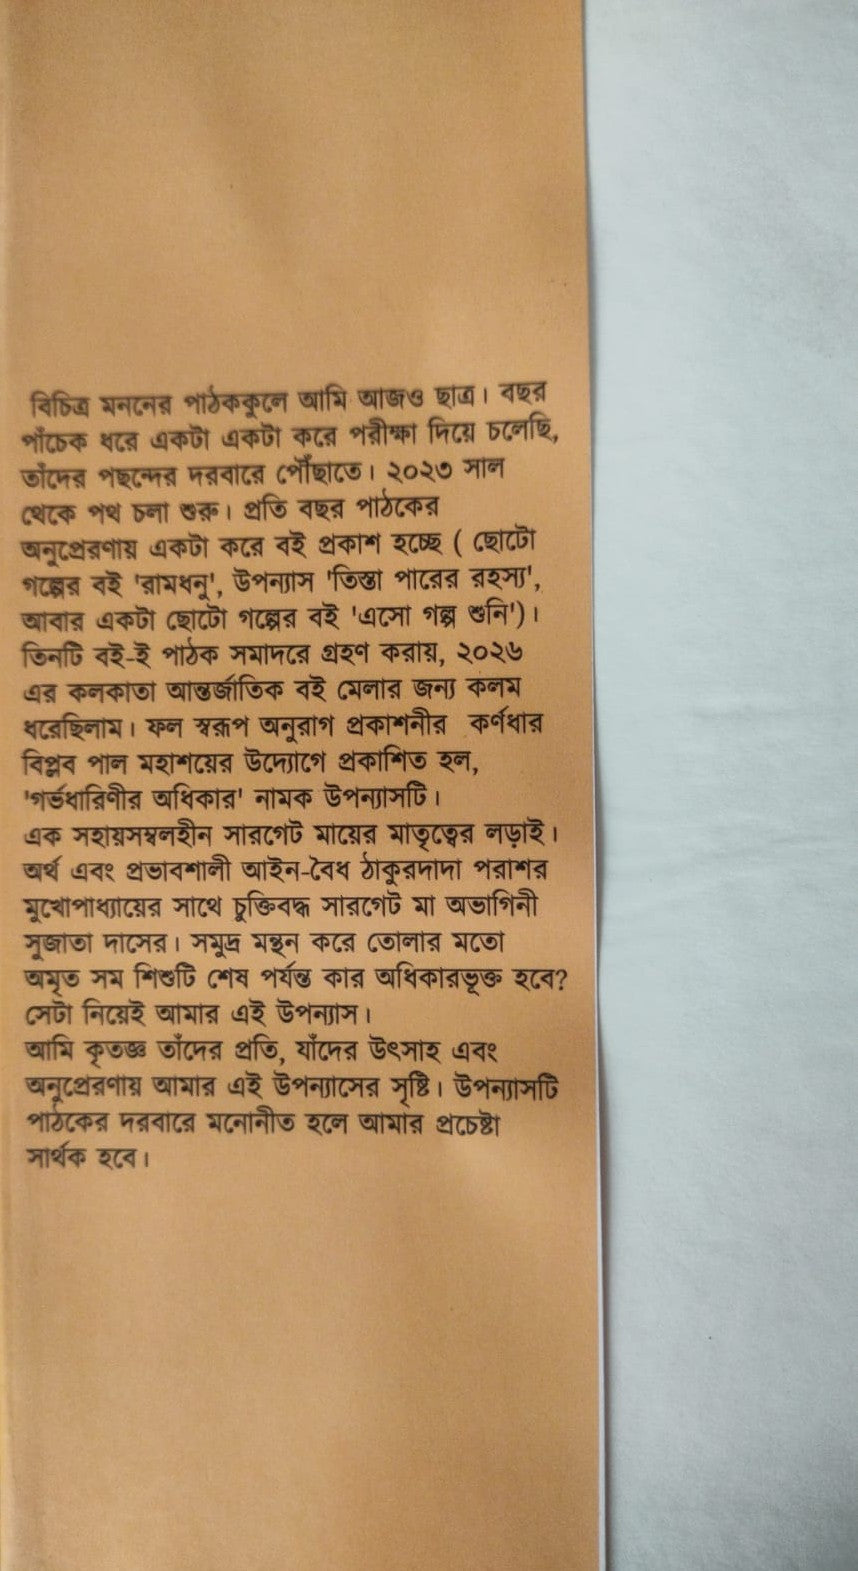 বিচিত্র মননের পাঠককুলে আমি আজও ছাত্র। বছর
পাঁচেক ধরে একটা একটা করে পরীক্ষা দিয়ে চলেছি,
তাঁদের পছন্দের দরবারে পৌঁছাতে। ২০২৩ সাল
থেকে পথ চলা শুরু। প্রতি বছর পাঠকের
অনুপ্রেরণায় একটা করে বই প্রকাশ হচ্ছে ( ছোটো
গল্পের বই 'রামধনু', উপন্যাস 'তিস্তা পারের রহস্য',
আবার একটা ছোটো গল্পের বই 'এসো গল্প শুনি')।
তিনটি বই-ই পাঠক সমাদরে গ্রহণ করায়, ২০২৬
এর কলকাতা আন্তর্জাতিক বই মেলার জন্য কলম
ধরেছিলাম। ফল স্বরূপ অনুরাগ প্রকাশনীর কর্ণধার
বিপ্লব পাল মহাশয়ের উদ্যোগে প্রকাশিত হল,
'গর্ভধারিণীর অধিকার' নামক উপন্যাসটি।
এক সহায়সম্বলহীন সারগেট মায়ের মাতৃত্বের লড়াই।
অর্থ এবং প্রভাবশালী আইন-বৈধ ঠাকুরদাদা পরাশর
মুখোপাধ্যায়ের সাথে চুক্তিবদ্ধ সারগেট মা অভাগিনী
সুজাতা দাসের। সমুদ্র মন্থন করে তোলার মতো
অমৃত সম শিশুটি শেষ পর্যন্ত কার অধিকারভূক্ত হবে?
সেটা নিয়েই আমার এই উপন্যাস।
আমি কৃতজ্ঞ তাঁদের প্রতি, যাঁদের উৎসাহ এবং
অনুপ্রেরণায় আমার এই উপন্যাসের সৃষ্টি। উপন্যাসটি
পাঠকের দরবারে মনোনীত হলে আমার প্রচেষ্টা
সার্থক হবে।